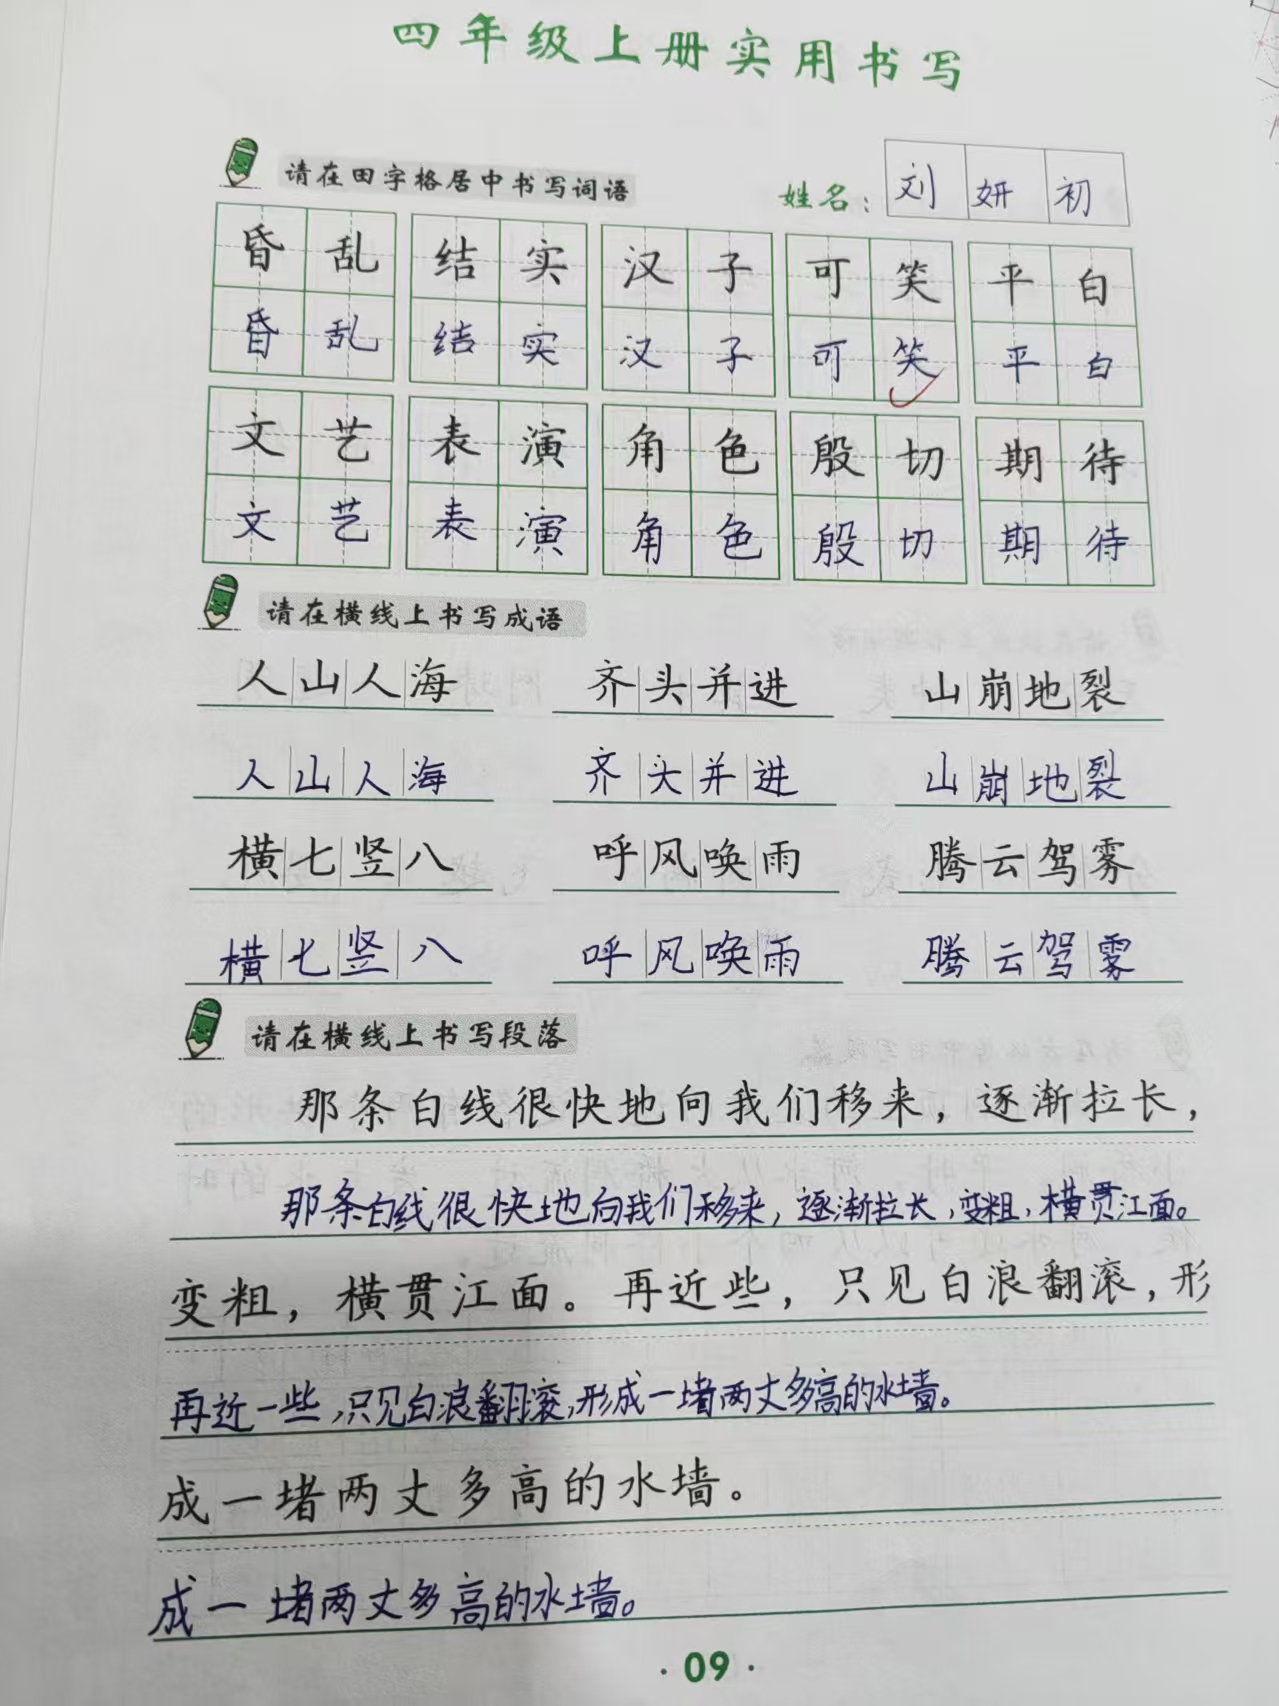 四年级上册实用书写
请在田字格居中书写词语 姓名： 刘妍初
昏乱 结实 汉子 可笑 平白
昏乱 结实 汉子 可笑 平白
文艺 表演 角色 殷切 期待
文艺 表演 角色 殷切 期待
请在横线上书写成语
人山人海 齐头并进 山崩地裂
人山人海 齐头并进 山崩地裂
横七竖八 呼风唤雨 腾云驾雾
横七竖八 呼风唤雨 腾云驾雾
请在横线上书写段落
那条白线很快地向我们移来，逐渐拉长，
那条白线很快地向我们移来，逐渐拉长，变粗，横贯江面。
变粗，横贯江面。再近些，只见白浪翻滚，形
再近一些，只见白浪翻滚，形成一堵两丈多高的水墙。
成一堵两丈多高的水墙。
成一堵两丈多高的水墙。
·09·